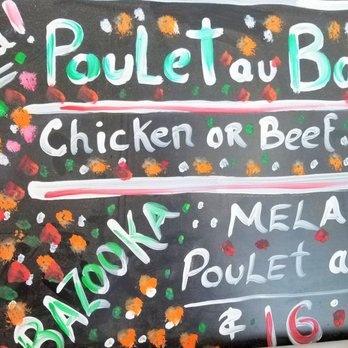 Poulet au Bo
Chicken or Beef.
BAZOOKA
MELA
Poulet a
$ 16